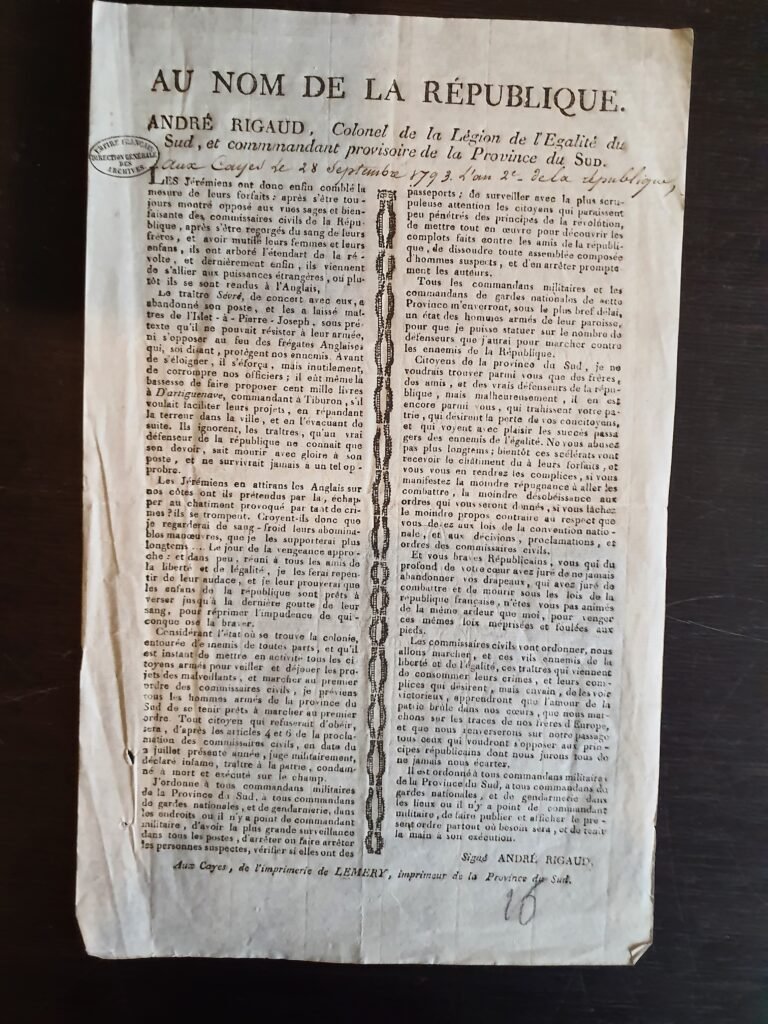 AU NOM DE LA RÉPUBLIQUE.
ANDRÉ RIGAUD, Colonel de la Légion de l'Egalité du
Sud, et commmandant provisoire de la Province du Sud.
EMPIRE FRANÇAIS
DIRECTION GÉNÉRALE
DES
ARCHIVES
Aux Cayes Le 28 Septembre 1793. L'an 2e. de la république,
LES Jérémiens ont donc enfin comblé la
mesure de leurs forfaits: après s'être tou-
jours montré opposé aux vues sages et bien-
faisante des commissaires civils de la Répu-
blique, après s'être regorgés du sang de leurs
frères, et avoir mutilé leurs femmes et leurs
enfans, ils ont arboré l'étendart de la ré-
volte, et dernièrement enfin, ils viennent
de s'allier aux puissances étrangères, ou plu-
tôt ils se sont rendus à l'Anglais,
Le traître Sévré, de concert avec eux, a
abandonné son poste, et les a laissé maî-
tres de l'Islet-à-Pierre-Joseph, sous pré-
texte qu'il ne pouvait résister à leur armée,
ni s'opposer au feu des frégates Anglaises
qui, soi disant, protègent nos ennemis. Avant
de s'éloigner, il s'éforça, mais inutilement,
de corrompre nos officiers; il eût même la
bassesse de faire proposer cent mille livres
à D'artiguenave, commandant à Tiburon, s'il
voulait faciliter leurs projets, en répandant
la terreur dans la ville, et en l'évacuant de
suite. Ils ignorent, les traîtres, qu'un vrai
défenseur de la république ne connait que
son devoir, sait mourir avec gloire à son
poste, et ne survivrait jamais à un tel op-
probre.
Les Jérémiens en attirans les Anglais sur
nos côtes ont ils prétendus par là, échap-
per au chatiment provoqué par tant de cri-
mes? ils se trompent. Croyent-ils donc que
je regarderai de sang-froid leurs abomina-
bles manœuvres, que je les supporterai plus
longtems ... Le jour de la vengeance appro-
che: et dans peu, réuni à tous les amis de
la liberté et de légalité, je les ferai repen-
tir de leur audace, et je leur prouverai que
les enfans de la république sont prêts à
verser jusqu'à la dernière goutte de leur
sang, pour réprimer l'impudence de qui-
conque ose la braver.
Considérant l'état où se trouve la colonie,
entourée d'ennemis de toutes parts, et qu'il
est instant de mettre en activité tous les ci-
toyens armés pour veiller et déjouer les pro-
jets des malveillants, et marcher au premier
ordre des commissaires civils, je préviens
tous les hommes armés de la province du
Sud de se tenir prêts à marcher au premier
ordre. Tout citoyen qui refuserait d'obéir,
sera, d'après les articles 4 et 6 de la procla-
mation des commissaires civils, en date du
2 juillet présente année, jugé militairement,
déclaré infame, traître à la patrie, condam-
né à mort et exécuté sur le champ.
J'ordonne à tous commandans militaires
de la Province du Sud, à tous commandans
de gardes nationales, et de gendarmerie, dans
les endroits où il n'y a point de commandant
militaire, d'avoir la plus grande surveillance
dans tous les postes, d'arrêter ou faire arrêter
les personnes suspectes, vérifier si elles ont des
passeports; de surveiller avec la plus scru-
puleuse attention les citoyens qui paraissent
peu pénétrés des principes de la révolution,
de mettre tout en œuvre pour découvrir les
complots faits contre les amis de la républi-
que, de dissoudre toute assemblée composée
d'hommes suspects, et d'en arrêter prompte
ment les auteurs.
Tous les commandans militaires et les
commandans de gardes nationales de cette
Province m'enverront, sous le plus bref délai,
un état des hommes armés de leur paroisse,
pour que je puisse statuer sur le nombre de
défenseurs que j'aurai pour marcher contre
les ennemis de la République.
Citoyens de la province du Sud, je ne
voudrais trouver parmi vous que des frères,
des amis, et des vrais défenseurs de la répu-
blique, mais malheureusement, il en est
encore parmi vous, qui trahissent votre pa-
trie, qui désirent la perte de vos concitoyens,
et qui voyent avec plaisir les succès passa
gers des ennemis de l'égalité. Ne vous abusez
pas plus longtems; bientôt ces scélérats vont
recevoir le châtiment dû à leurs forfaits, et
vous vous en rendrez les complices, si vous
manifestez la moindre répugnance à aller les
combattre, la moindre desobéissance aux
ordres qui vous seront donnés, si vous lâchez
le moindre propos contraire au respect que
vous devez aux lois de la convention natio-
nale, et aux décivions, proclamations, et
ordres des commissaires civils.
Et vous braves Républicains, vous qui du
profond de votre cœur avez juré de ne jamais
abandonner vos drapeaux, qui avez juré de
combattre et de mourir sous les lois de la
république française, n'êtes vous pas animés
de la même ardeur que moi, pour venger
ces mêmes loix méprisées et foulées aux
pieds.
Les commissaires civils vont ordonner, nous
allons marcher, et ces vils ennemis de la
liberté et de l'égalité, ces traîtres qui viennent
de consommer leurs crimes, et leurs com-
plices qui désirent, mais envain, de les voir
victorieux, apprendront que l'amour de la
patrie brûle dans nos cœurs, que nous mar-
chons sur les traces de nos frères d'Europe,
et que nous renverserons sur notre passage
tous ceux qui voudront s'opposer aux prin-
cipes républicains dont nous jurons tous de
ne jamais nous écarter.
Il est ordonné à tous commandans militaires
de la Province du Sud, à tous commandans de
gardes nationales, et de gendarmerie dans
les lieux ou il n'y a point de commandant
militaire, de faire publier et afficher le pre-
sent ordre partout où besoin sera, et de tenir
la main à son exécution.
Signé ANDRÉ RIGAUD.
Aux Cayes, de l'imprimerie de LEMERY, imprimeur de la Province du Sud.